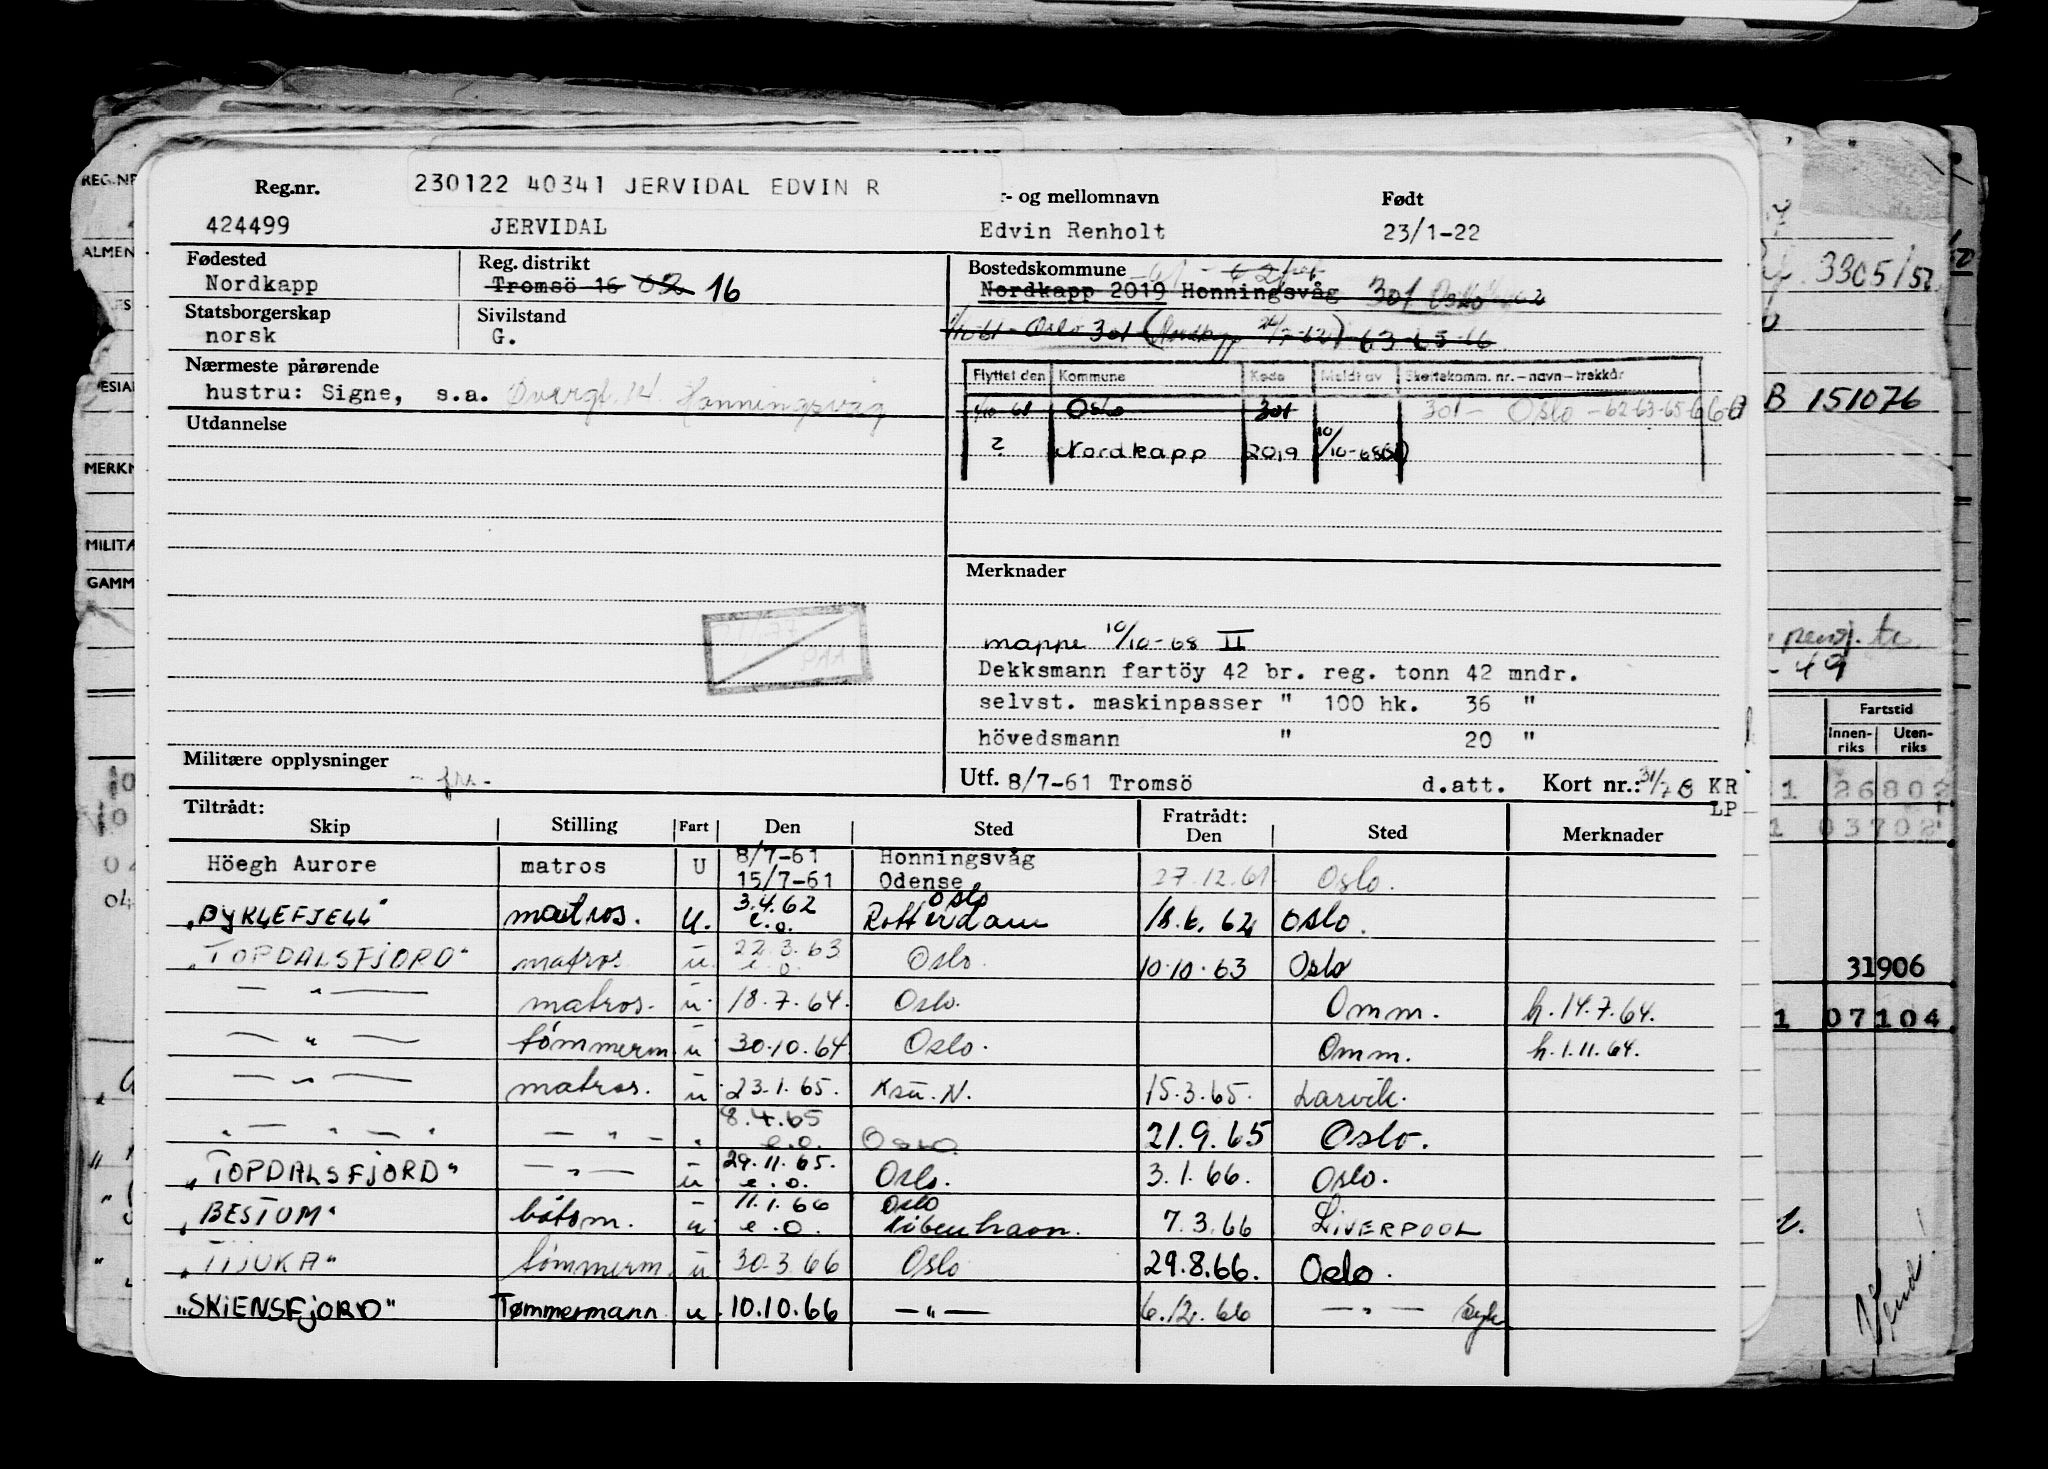 230122 40341 JERVIDAL EDVIN R
Reg.nr. - og mellomnavn Født
424499 JERVIDAL Edvin Renholt 23/1-22
Fødested Reg. distrikt Bostedskommune
Nordkapp Tromsö 16 16 Nordkapp 2019 Honningsvåg 301 Oslo
Statsborgerskap Sivilstand
norsk G. Oslo 301
Nærmeste pårørende
hustru: Signe, s.a. Honningsvåg
Flyttet den Kommune Kode Meldt av Skattekomm. nr. - navn - trekkår
Oslo 301 301 - Oslo - 62-63-65-66
Utdannelse
2 Nordkapp 2019 10/10-68
Merknader
mappe 10/10-68 II
Dekksmann fartöy 42 br. reg. tonn 42 mndr.
selvst. maskinpasser " 100 hk. 36 "
hövedsmann " 20 "
Militære opplysninger
Utf. 8/7-61 Tromsö d.att. Kort nr.: KR
LP
Tiltrådt: Fratrådt:
Skip Stilling Fart Den Sted Den Sted Merknader
Höegh Aurore matros U 8/7-61 Honningsvåg
15/7-61 Odense 27.12.61 Oslo.
"BYKLEFJELL" matros. u. 3.4.62 e.o. Oslo Rotterdam 18.6.62 Oslo.
"TOPDALSFJORD" matros u. 22.3.63 e.o. Oslo. 10.10.63 Oslo
— " — matros. u. 18.7.64. Oslo. Omm. h. 14.7.64.
— " — tømmerm. u 30.10.64 Oslo. Omm. h. 1.11.64.
— " — matros. u 23.1.65. Ksu. N. 15.3.65. Larvik.
" — " — " — " — " 8.4.65 e.o. Oslo 21.9.65 Oslo.
"TOPDALSFJORD" — " — u 29.11.65. e.o. Oslo. 3.1.66. Oslo.
"BESTUM" båtsm. u 11.1.66 e.o. Oslo København. 7.3.66 LIVERPOOL
"TIJUKA" tømmerm. u 30.3.66 Oslo 29.8.66. Oslo.
"SKIENSFJORD" Tømmermann u. 10.10.66 — " — 6.12.66 — " — Syk
REG.NR
ALMEN
MERKN
MILITÆ
GAMM
3305/52
B 151076
- 49
Fartstid
Innenriks Utenriks
1 26802
1 03702
31906
1 07104
Vend!